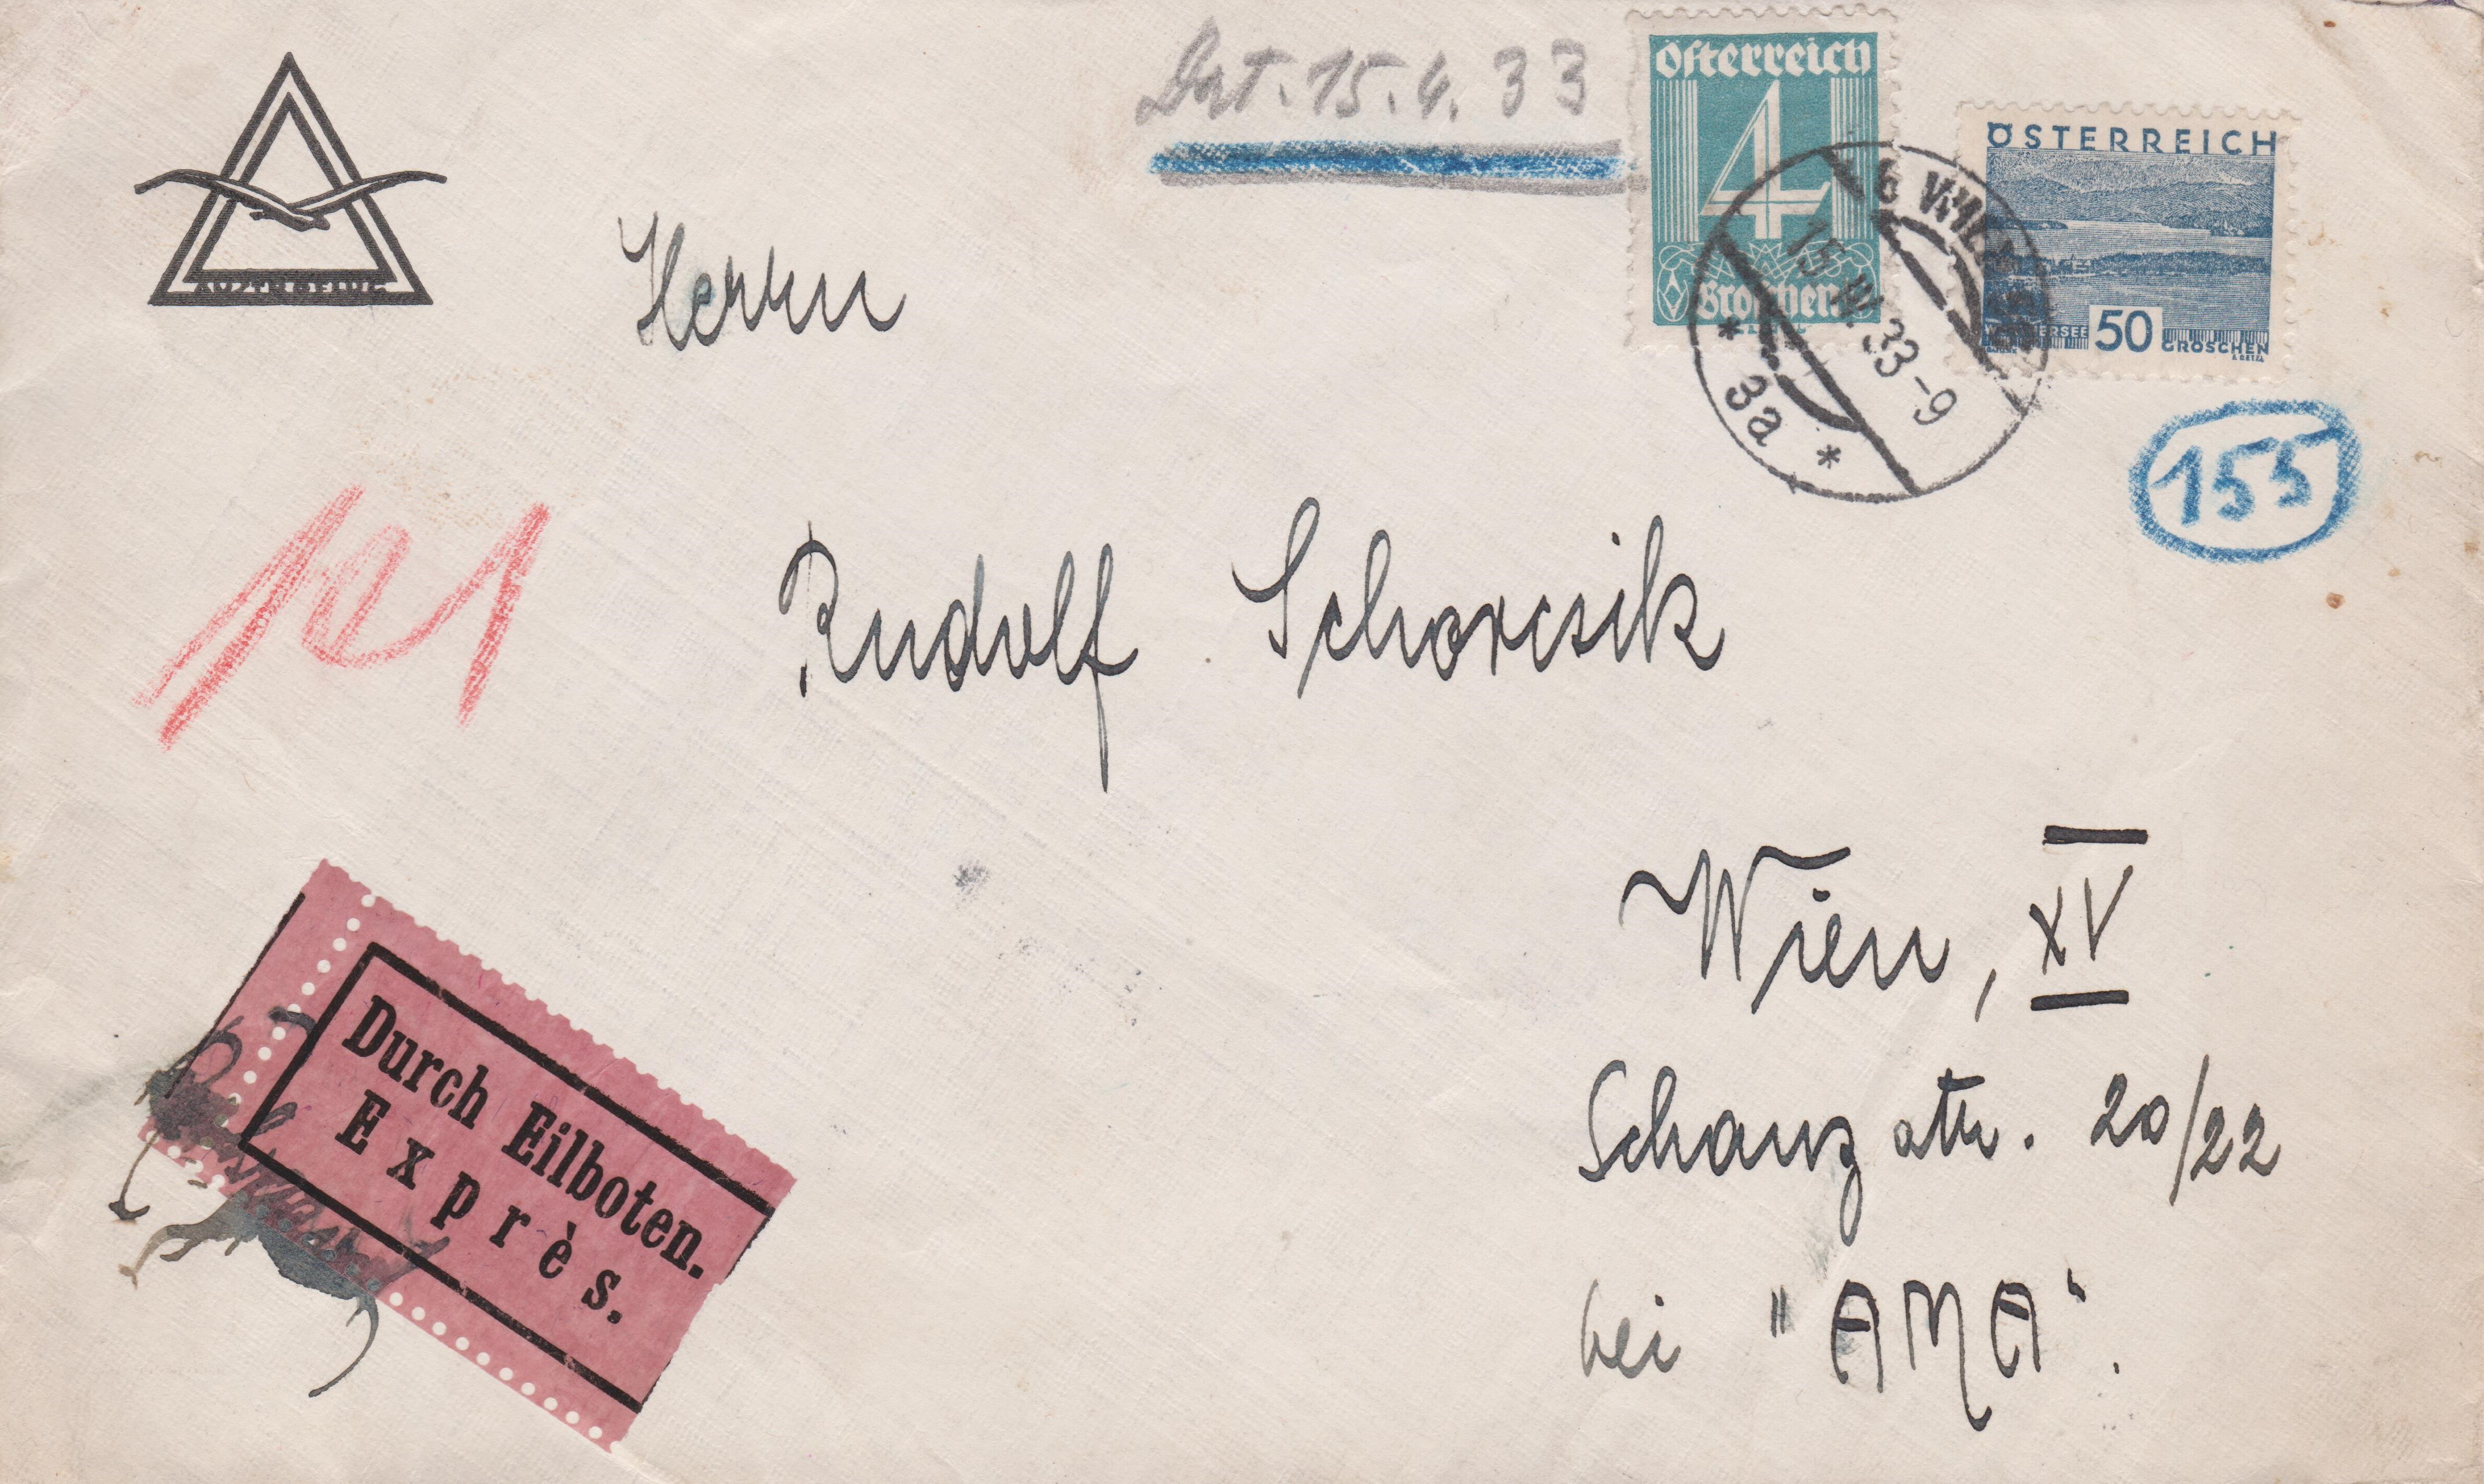 15.4.33
Österreich
4
Groschen
ÖSTERREICH
50
GROSCHEN
15.IV.33-9
* 3a *
155
Herrn
Rudolf Schorcsik
Wien, XV
Schanzstr. 20/22
bei "AMA".
Durch Eilboten.
Exprès.